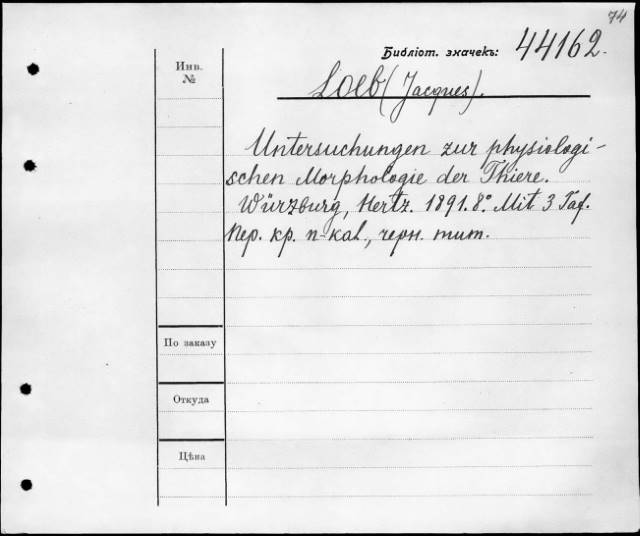 74
Библіот. значекъ: 44162.
Инв. №
Loeb (Jacques).
Untersuchungen zur physiologi-
schen Morphologie der Thiere.
Würzburg, Hertz. 1891. 8°. Mit 3 Taf.
Пер. кр. п-кал., черн. тит.
По заказу
Откуда
Цѣна